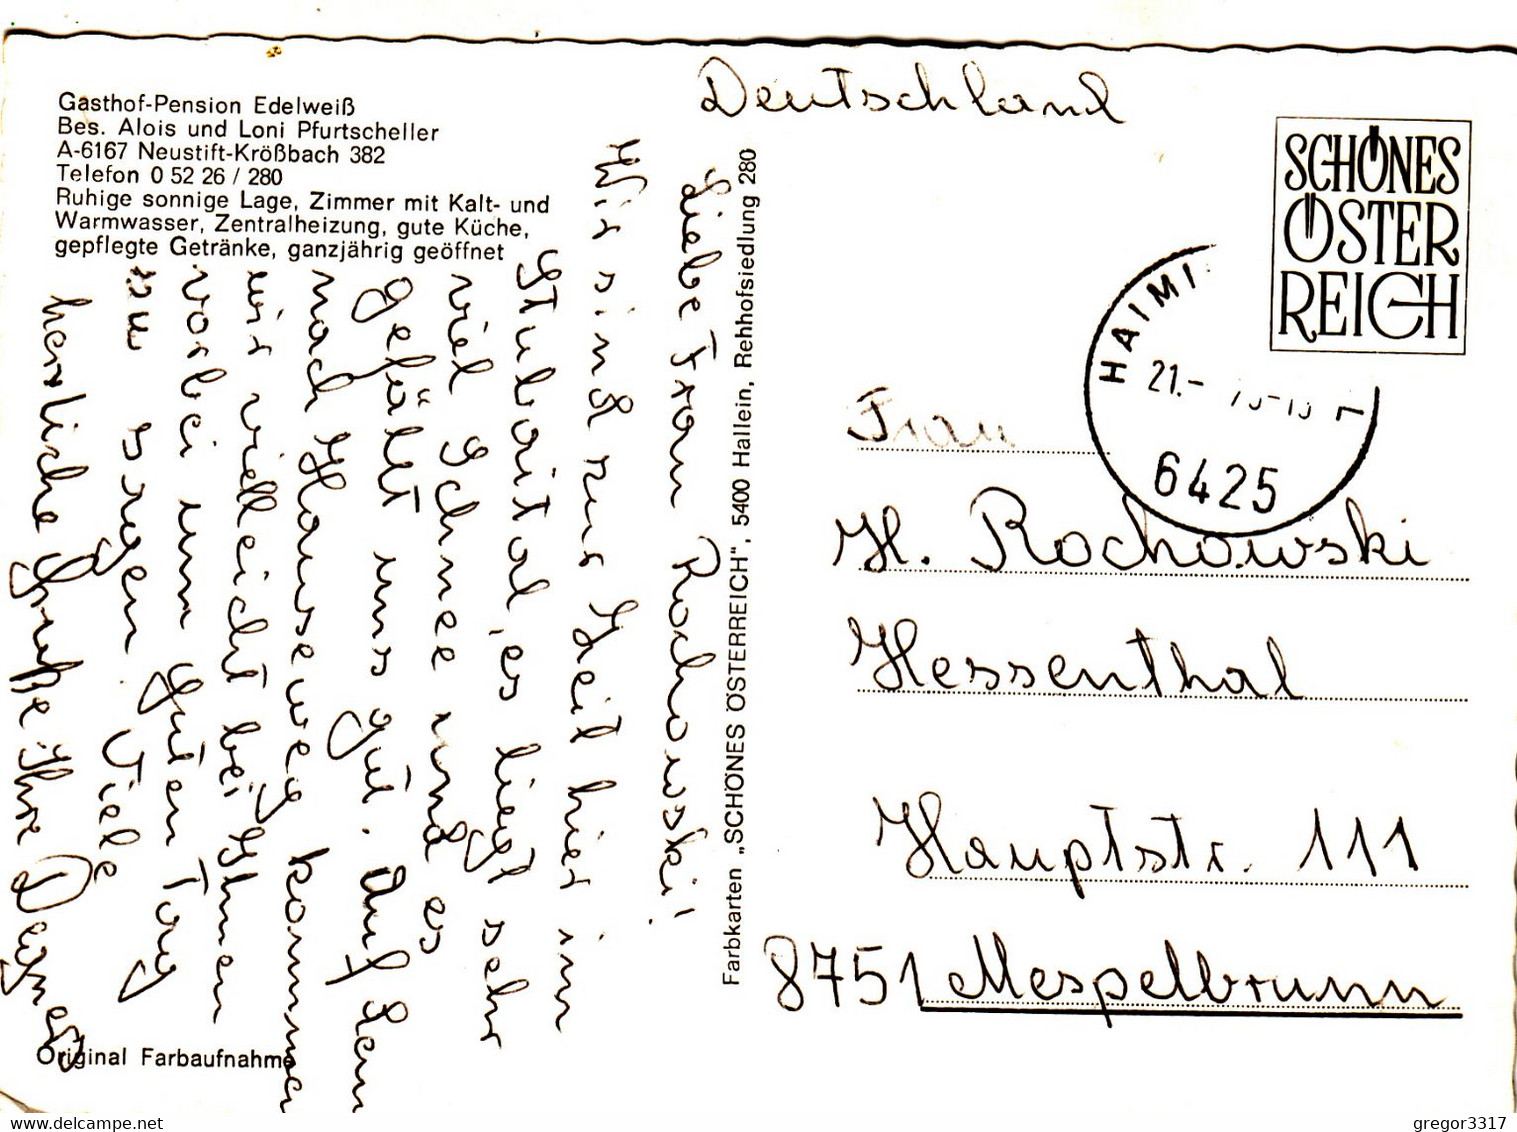 Gasthof-Pension Edelweiß
Bes. Alois und Loni Pfurtscheller
A-6167 Neustift-Krößbach 382
Telefon 0 52 26 / 280
Ruhige sonnige Lage, Zimmer mit Kalt- und
Warmwasser, Zentralheizung, gute Küche,
gepflegte Getränke, ganzjährig geöffnet
Liebe Frau Rochowski!
Wir sind zur Zeit hier im
Stubaital, es liegt sehr
viel Schnee und es
gefällt uns gut. Auf dem
nach Hauseweg kommen
wir vielleicht bei Ihnen
vorbei um guten Tag
zu sagen. Viele
herzliche Grüße Ihre
Original Farbaufnahme
Farbkarten „SCHÖNES ÖSTERREICH", 5400 Hallein, Rehhofsiedlung 280
Deutschland
SCHÖNES
ÖSTER
REICH
HAIMI
21.-
6425
Frau
H. Rochowski
Hessenthal
Hauptstr. 111
8751 Mespelbrunn
gregor3317